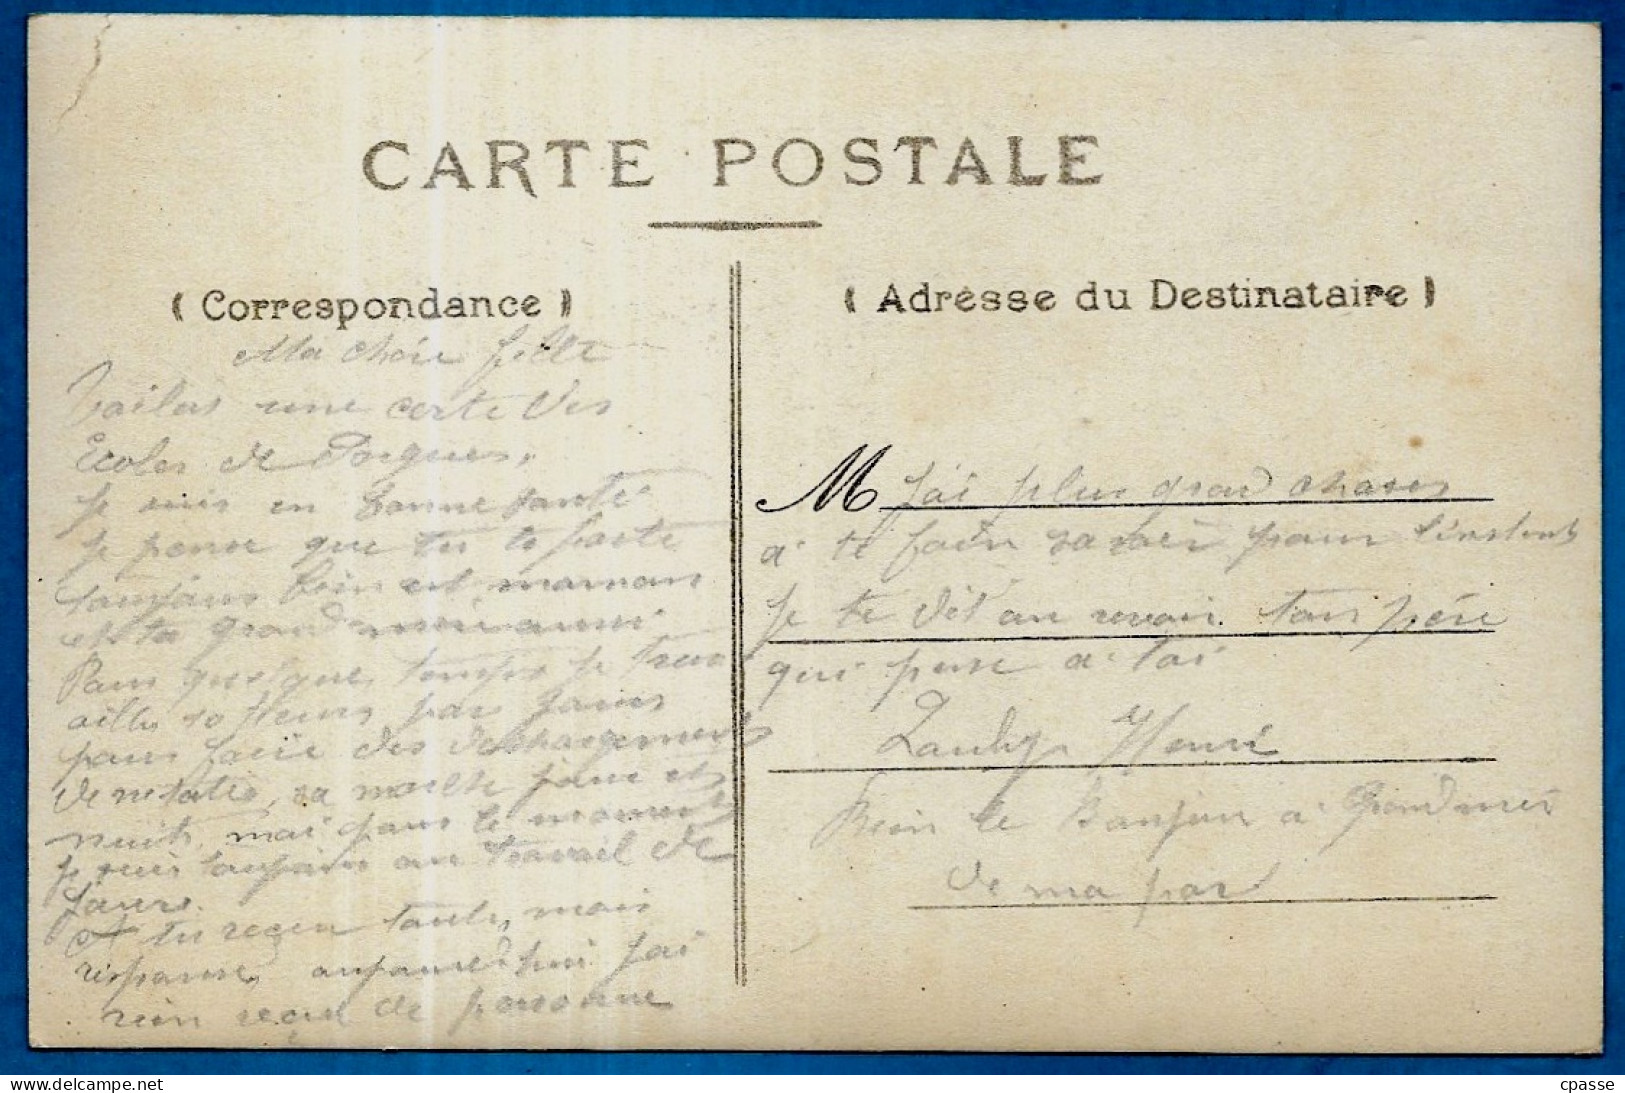 CARTE POSTALE
( Correspondance )
Ma chére fille
Voilas une carte des
Ecoles de
Je suis en bonne santé
Je pense que tu te porte
toujours bien et maman
et ta grand mère aussi
Pour quelque temps je trav
aille 10 heures par jours
pour faire des déchargements
de sa marche jour et
nuits, mai pour le moment
je suis toujours au travail de
jours.
A tu reçeu toute, mais
réponse, aujourd'hui j'ai
rien reçu de personne
( Adresse du Destinataire )
M j'ai plus grand choses
a te faire savoir pour l'instant
Je te dit au revoir. ton père
qui pense a toi
Henri
Bien le Bonjour a Grand mère
de ma part
cpasse